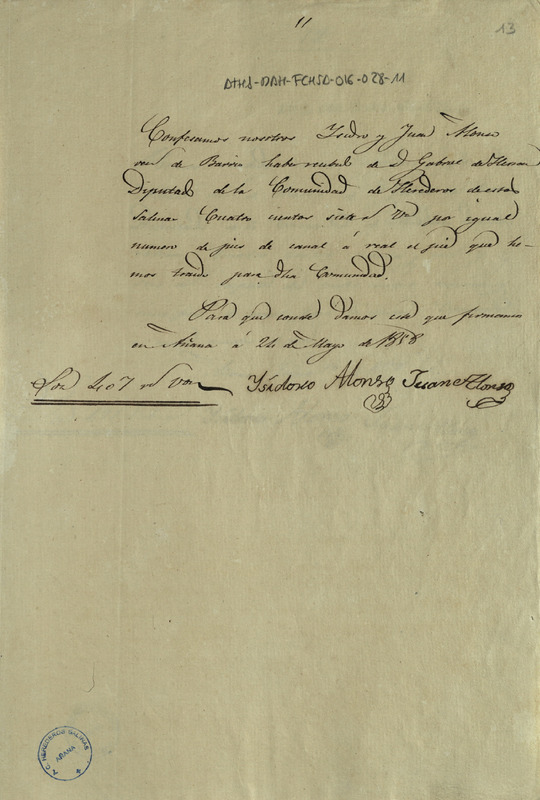 11
13
ATHA-DAH-FCHSA-016-028-11
Confesamos nosotros Ysidro y Juan Alonso
vecs de Barrio haber recibido de d. Gabriel de
Diputado de la Comunidad de Herederos de estas
Salinas Cuatro cientos siete rs Vn por igual
numero de pies de canal á real el pie que he-
mos traido para dha Comunidad.
Para que conste damos este que firmamos
en Añana á 24 de Mayo de 1858
Son 407 rs von Ysidoro Alonso Juan Alonso
HEREDEROS SALINAS
AÑANA